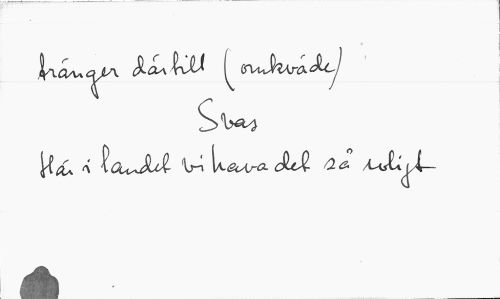 tränger därtill (omkväde)
Svar
Här i landet vi hava det så roligt